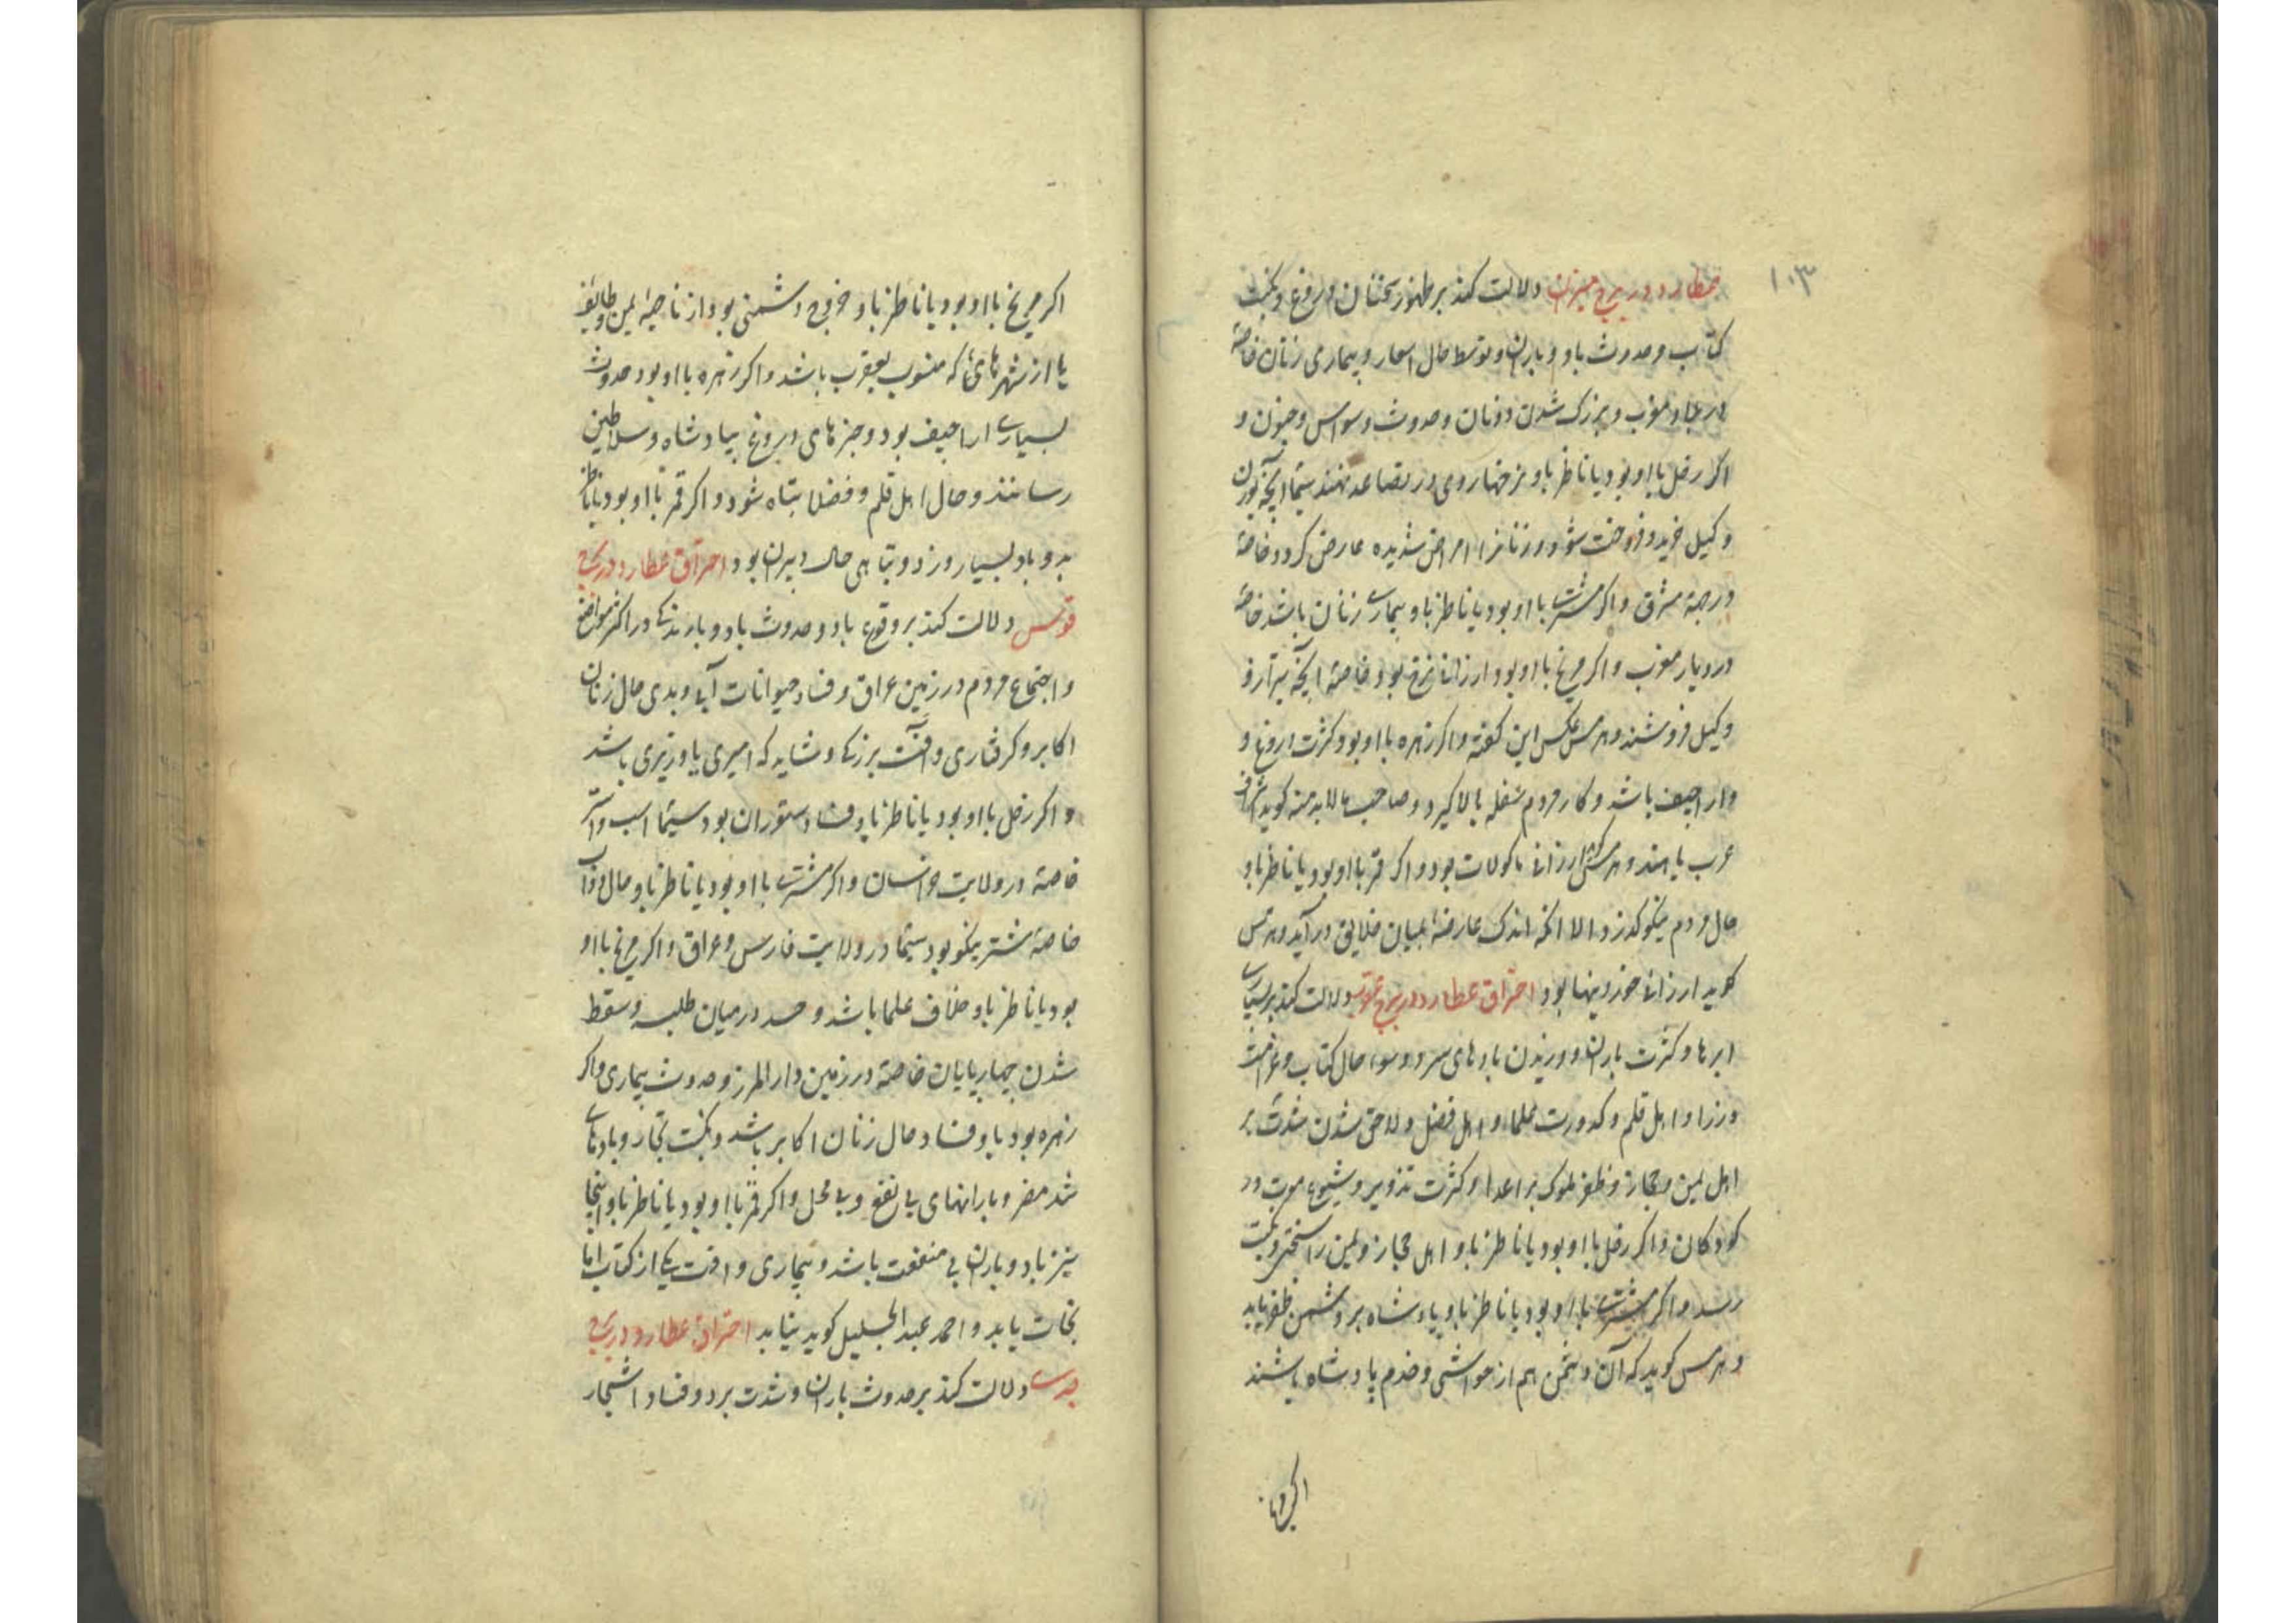 ۱۰۳
عطارد در برج میزان دلالت کند بر ظهور سخنان دروغ و نکبت
کتاب و حدوث باد و باران و توسط حال اسعار و بیماری زنان خاصهٔ
در بلاد مغرب و بزرک شدن دونان و حدوث وسواس و جنون و
اکر زحل با او بود یا ناظر باو نرخها روی در تصاعد نهند سیما آنچه بوزن
و کیل خرید و فروخت شود و زنانرا امراض شدیده عارض کردد خاصهٔ
در جهة مشرق و اکر مشتری با او بود یا ناظر باو بیماری زنان باشد خاصهٔ
در دیار مغرب و اکر مریخ با او بود ارزانی نرخ بود خاصهٔ آنچه بترازو
و کیل فروشند و هرمس عکس این کفته و اکر زهره با او بود کثرت دروغ و
و اراجیف باشد و کار مردم سفله بالا کیرد و صاحب مالابدمنه کوید
عرب یابند و هرمس ارزانی ماکولات بود و اکر قمر با او بود یا ناظر باو
حال مردم نیکو کذرد الا انکه اندک عارضهٔ بمیان خلایق در آید و هرمس
کوید ارزانی خوردنیها بود احتراق عطارد در برج عقرب دلالت کند بر بسیاری
ابرها و کثرت باران و وزیدن بادهای سرد و سوء حال کتاب و
وزرا و اهل قلم و کدورت علماء و اهل فضل و لاحق شدن شدت بر
اهل یمن و حجاز و ظفر ملوک بر اعدا و کثرت تذویر و شیوع موت در
کودکان و اکر زحل با او بود یا ناظر باو اهل حجاز و یمن را سختی و نکبت
رسد و اکر مشتری با او بود یا ناظر باو پادشاه بر دشمن ظفر یابد
و هرمس کوید که آن دشمن هم از حواشی و خدم پادشاه باشند
اکر مریخ با او بود یا ناظر باو خروج دشمنی بود از ناحیهٔ یمن و طایف
یا از شهرهائی که منسوب بعقرب باشد و اکر زهره با او بود حدوث
بسیاری اراجیف بود و خبرهای دروغ بپادشاه و سلاطین
رسانند و حال اهل قلم و فضلا تباه شود و اکر قمر با او بود یا ناظر
بدو باد بسیار وزد و تباهی حال دبیران بود احتراق عطارد در برج
قوس دلالت کند بر وقوع باد و حدوث باد و بارندکی در اکثر مواضع
و اجتماع مردم در زمین عراق و فساد حیوانات آبی و بدی حال زنان
اکابر و کرفتاری و آفت بزرکی و شاید که امیری یا وزیری باشد
و اکر زحل با او بود یا ناظر باو فساد ستوران بود سیما اسب و استر
خاصهٔ در ولایت خراسان و اکر مشتری با او بود یا ناظر باو حال دواب
خاصهٔ شتر نیکو بود سیما در ولایت فارس و عراق و اکر مریخ با او
بود یا ناظر باو خلاف علما باشد و حسد در میان طلبه و سقط
شدن چهارپایان خاصهٔ در زمین دارالمرز و حدوث بیماری و اکر
زهره بود باو فساد حال زنان اکابر باشد و نکبت تجار و بادهای
شد مضر و بارانهای بی نفع و بی محل و اکر قمر با او بود یا ناظر باو اینجا
نیز باد و باران بی منفعت باشد و بیماری و آفت یکی از کتاب اما
نجات یابد و احمد عبدالجلیل کوید نیابد احتراق عطارد در برج
جدی دلالت کند بر حدوث باران و شدت برد و فساد اشجار